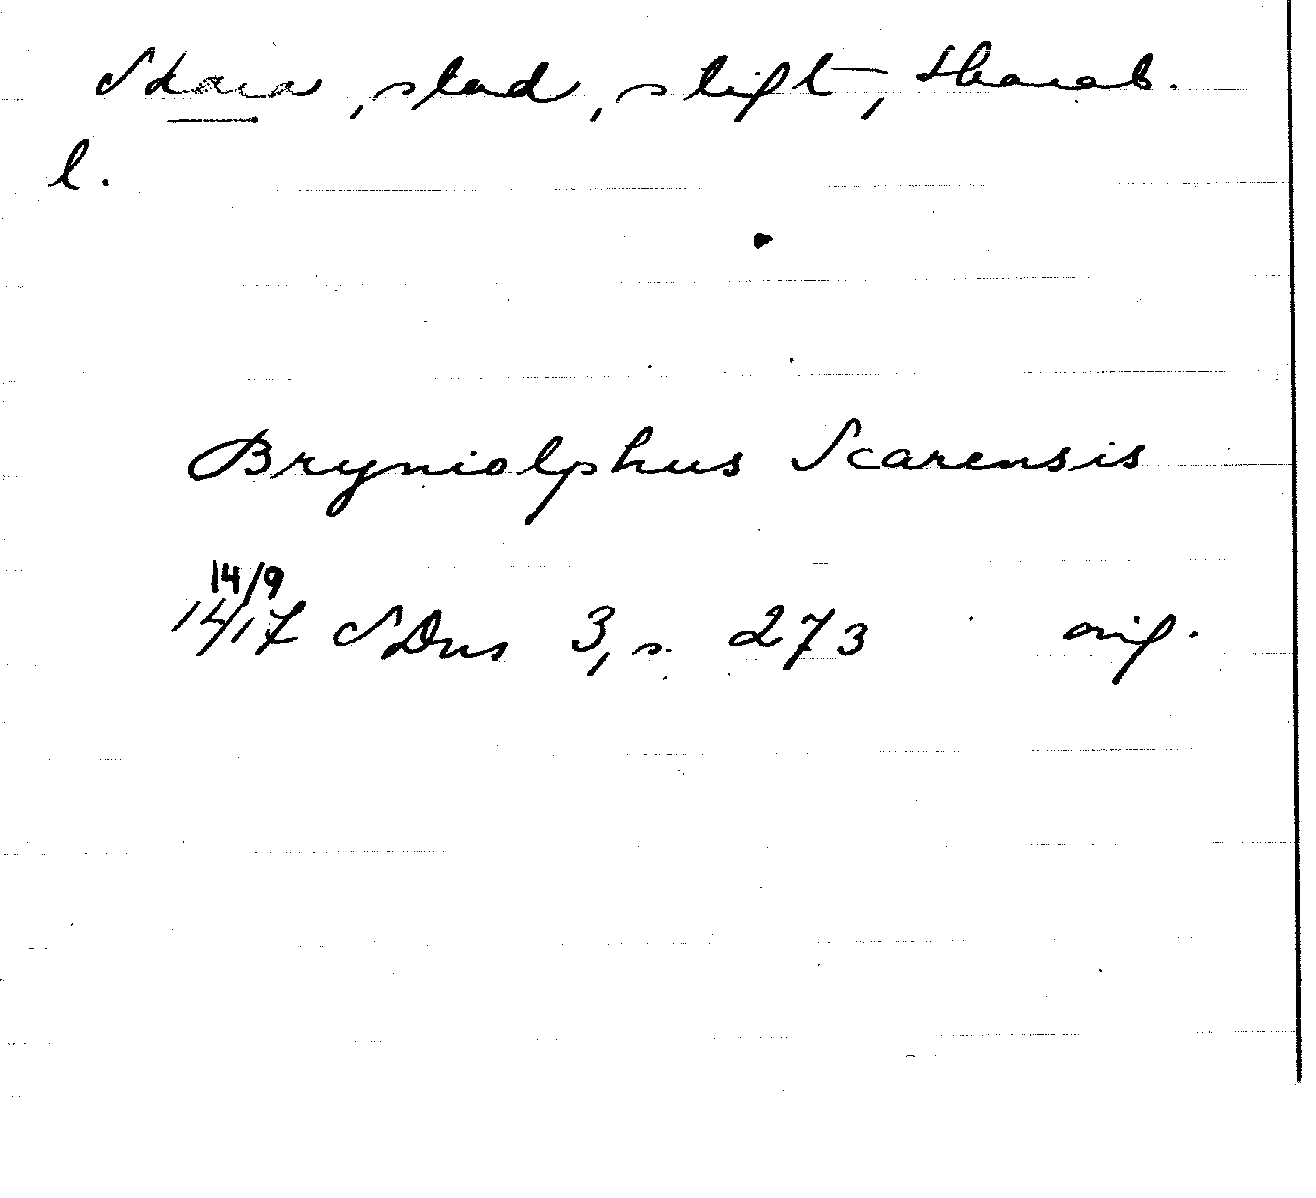 Skara, stad, stift, Skarab.
l.
Bryniolphus Scarensis
14/9
1417 SDns 3, s. 273 orig.